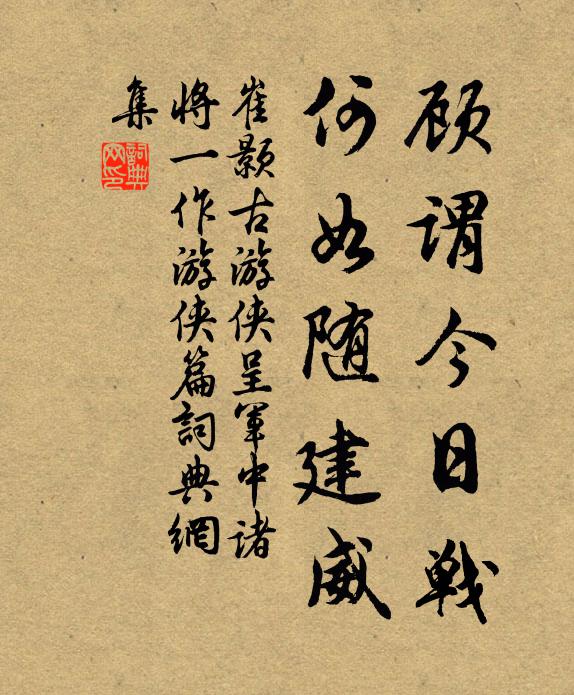 顾谓今日战
何如随建威
崔颢古游侠呈军中诸
将一作游侠篇词典网
集
词典网印